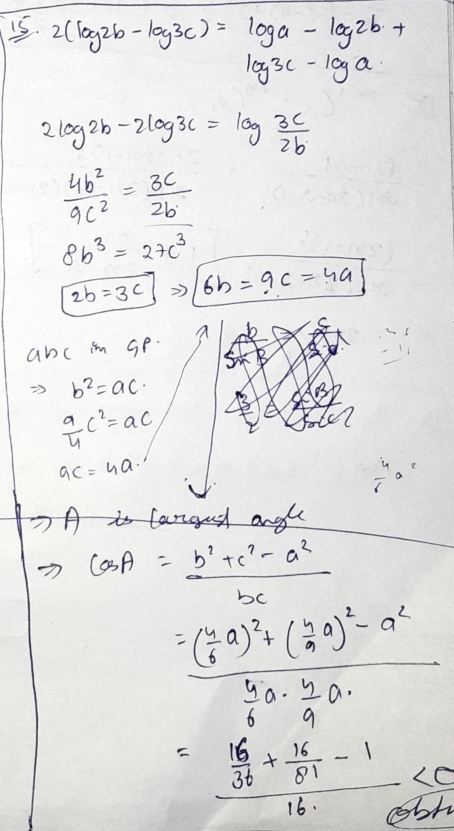 15. 2(log2b - log3c) = loga - log2b +
log3c - loga.
2log2b - 2log3c = log 3c/2b
4b²/9c² = 3c/2b
8b³ = 27c³
2b = 3c ⇒ 6b = 9c = 4a
abc in GP.
⇒ b² = ac.
9/4 c² = ac
9c = 4a.
4/6 a²
⇒ A is largest angle
⇒ CosA = b² + c² - a² / bc
= (4/6 a)² + (4/9 a)² - a² / 4/6 a · 4/9 a.
= 16/36 + 16/81 - 1 / 16. <0